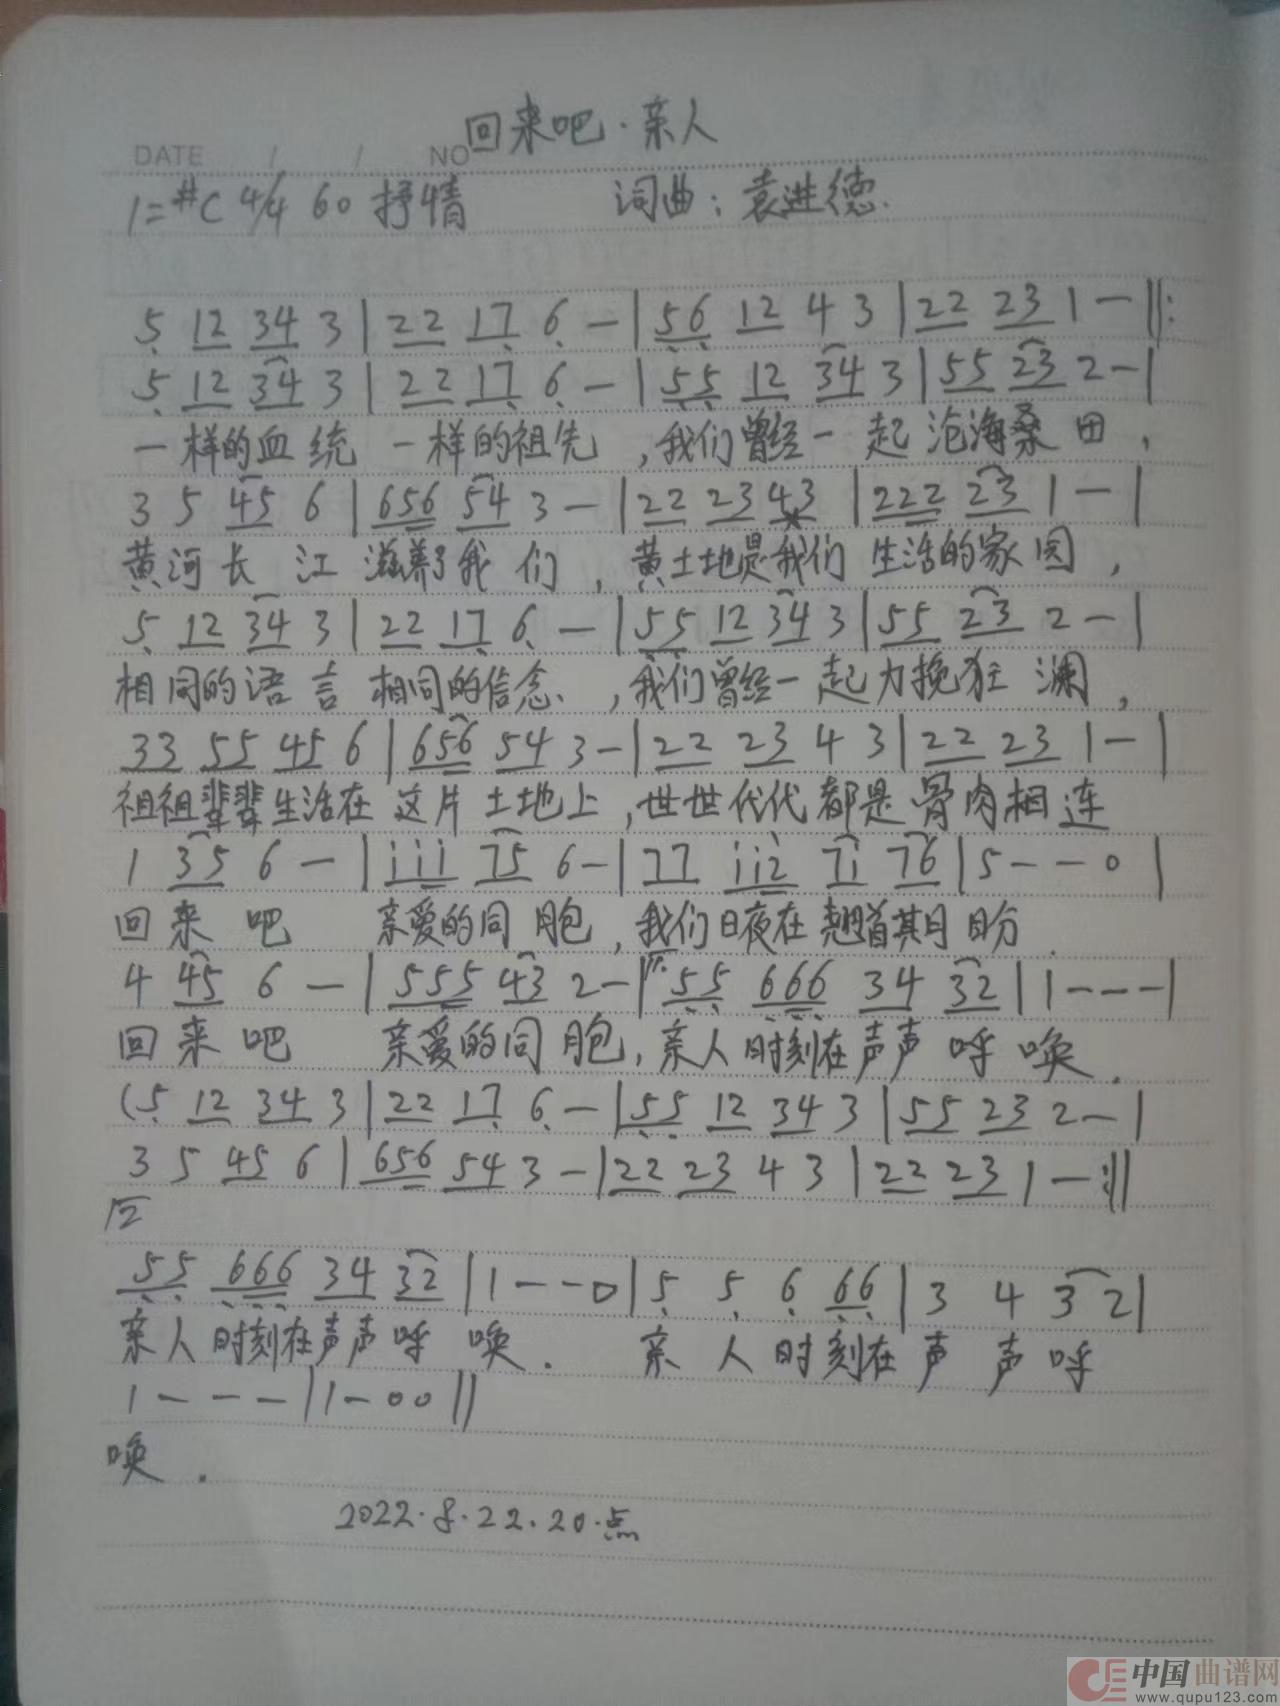 回来吧·亲人
DATE / / NO
1=#C 4/4 60 抒情 词曲：袁进德.
5 12 34 3 | 22 17 6 — | 56 12 4 3 | 22 23 1 — ‖:
5 12 34 3 | 22 17 6 — | 55 12 34 3 | 55 23 2 — |
一样的血统 一样的祖先，我们曾经一起沧海桑田，
3 5 45 6 | 656 54 3 — | 22 23 43 | 222 23 1 — |
黄河长江滋养了我们，黄土地是我们生活的家园，
5 12 34 3 | 22 17 6 — | 55 12 34 3 | 55 23 2 — |
相同的语言 相同的信念、，我们曾经一起力挽狂澜，
33 55 45 6 | 656 54 3 — | 22 23 4 3 | 22 23 1 — |
祖祖辈辈生活在这片土地上，世世代代都是骨肉相连
1 35 6 — | iii 75 6 — | 77 ii2 7i 76 | 5 - - 0 |
回来吧 亲爱的同胞，我们日夜在翘首其月目分.
4 45 6 — | 555 43 2 — | 55 666 34 32 | 1 - - - |
回来吧 亲爱的同胞，亲人时刻在声声呼唤.
(5 12 34 3 | 22 17 6 — | 55 12 34 3 | 55 23 2 — |
3 5 45 6 | 656 54 3 — | 22 23 4 3 | 22 23 1 — :‖
2
55 666 34 32 | 1 - - 0 | 5 5 6 66 | 3 4 32 |
亲人时刻在声声呼唤. 亲人时刻在声声呼
1 - - - | 1 - 0 0 ‖
唤.
2022.8.22.20.点
中国曲谱网
www.qupu123.com